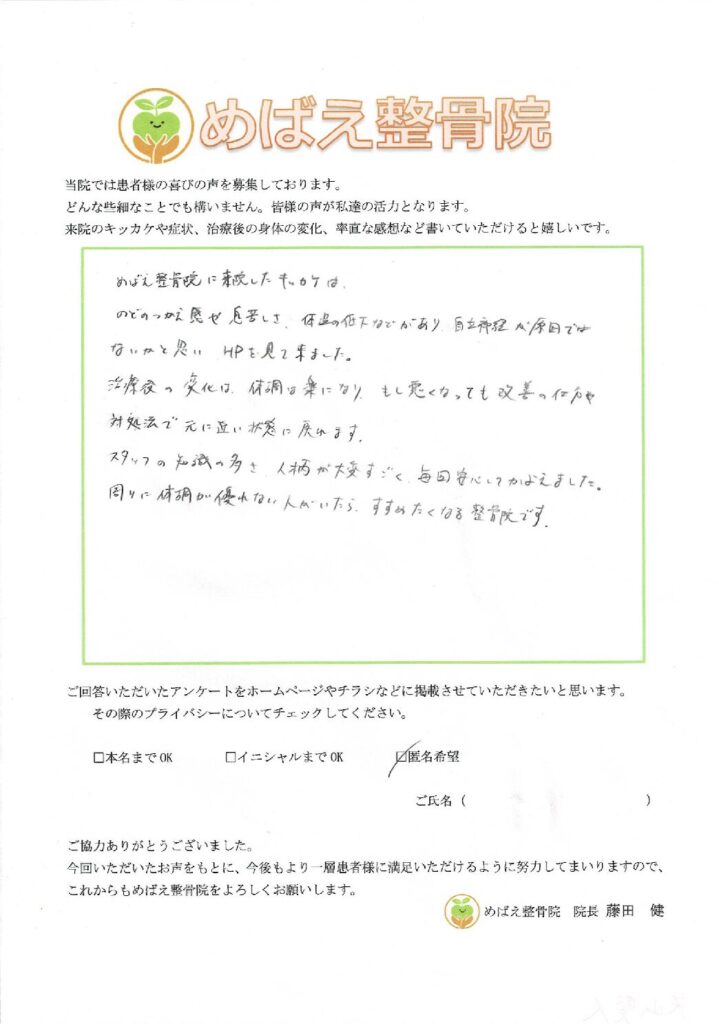 めばえ整骨院
当院では患者様の喜びの声を募集しております。
どんな些細なことでも構いません。皆様の声が私達の活力となります。
来院のキッカケや症状、治療後の身体の変化、率直な感想など書いていただけると嬉しいです。
めばえ整骨院に来院したキッカケは、
のどのつかえ感や息苦しさ、体温の低下などがあり、自立神経が原因では
ないかと思い HPを見て来ました。
治療後の変化は、体調は楽になり、もし悪くなっても改善の仕方や
対処法で元に近い状態に戻れます。
スタッフの知識の多さ、人柄が大変すごく、毎回安心してかよえました。
周りに体調が優れない人がいたら、すすめたくなる整骨院です。
ご回答いただいたアンケートをホームページやチラシなどに掲載させていただきたいと思います。
その際のプライバシーについてチェックしてください。
□本名までOK □イニシャルまでOK □匿名希望
ご氏名（ ）
ご協力ありがとうございました。
今回いただいたお声をもとに、今後もより一層患者様に満足いただけるように努力してまいりますので、
これからもめばえ整骨院をよろしくお願いします。
めばえ整骨院 院長 藤田 健